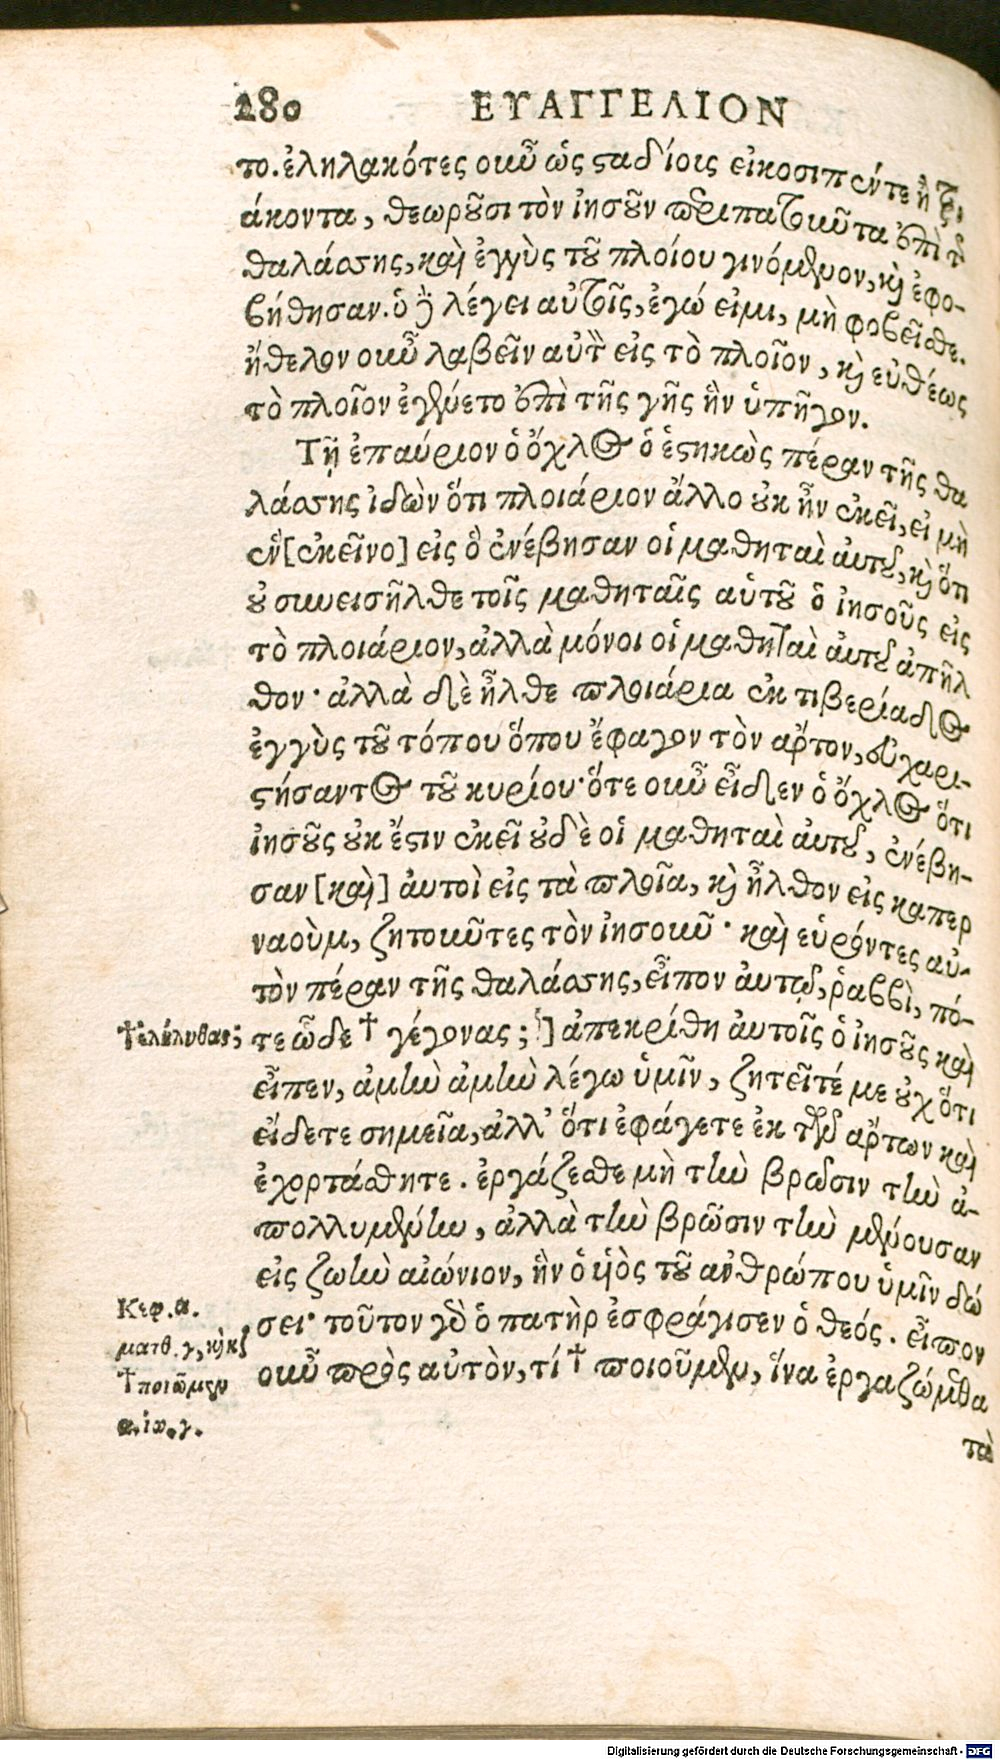 280 ΕΥΑΓΓΕΛΙΟΝ
το. ἐληλακότες οὖν ὡς ϛαδίοις εἰκοσιπέντε ἢ τρι
άκοντα, θεωροῦσι τὸν ἰησοῦν περιπατοῦντα ἐπὶ τῆς
θαλάσσης, καὶ ἐγγὺς τοῦ πλοίου γινόμενον, καὶ ἐφο-
βήθησαν. ὁ δὲ λέγει αὐτοῖς, ἐγώ εἰμι, μὴ φοβεῖσθε.
ἤθελον οὖν λαβεῖν αὐτὸν εἰς τὸ πλοῖον, καὶ εὐθέως
τὸ πλοῖον ἐγένετο ἐπὶ τῆς γῆς ἣν ὑπῆγον.
Τῇ ἐπαύριον ὁ ὄχλος ὁ ἑϛηκὼς πέραν τῆς θα
λάσσης ἰδὼν ὅτι πλοιάριον ἄλλο οὐκ ἦν ἐκεῖ, εἰ μὴ
ἓν [ἐκεῖνο] εἰς ὃ ἐνέβησαν οἱ μαθηταὶ ἀυτοῦ, καὶ ὅτι
οὐ συνεισῆλθε τοῖς μαθηταῖς αὑτοῦ ὁ ἰησοῦς εἰς
τὸ πλοιάριον, ἀλλὰ μόνοι οἱ μαθηταὶ ἀυτοῦ ἀπῆλ
θον· ἀλλὰ δὲ ἦλθε πλοιάρια ἐκ τιβεριάδος
ἐγγὺς τοῦ τόπου ὅπου ἔφαγον τὸν ἄρτον, εὐχαρι-
ϛήσαντος τοῦ κυρίου· ὅτε οὖν εἶδεν ὁ ὄχλος ὅτι
ἰησοῦς οὐκ ἔϛιν ἐκεῖ οὐδὲ οἱ μαθηταὶ ἀυτοῦ, ἐνέβη-
σαν [καὶ] ἀυτοὶ εἰς τὰ πλοῖα, καὶ ἦλθον εἰς καπερ
ναοὺμ, ζητοῦντες τὸν ἰησοῦν· καὶ εὑρόντες αὐ-
τὸν πέραν τῆς θαλάσσης, εἶπον ἀυτῷ, ῥαββὶ, πό-
†ἐλήλυθας; τε ὧδε † γέγονας; ] ἀπεκρίθη ἀυτοῖς ὁ ἰησοῦς καὶ
εἶπεν, ἀμὴν ἀμὴν λέγω ὑμῖν, ζητεῖτέ με οὐχ ὅτι
εἴδετε σημεῖα, ἀλλ’ ὅτι ἐφάγετε ἐκ τῶν ἄρτων καὶ
ἐχορτάσθητε. ἐργάζεσθε μὴ τὴν βρῶσιν τὴν ἀ-
πολλυμένην, ἀλλὰ τὴν βρῶσιν τὴν μένουσαν
εἰς ζωὴν αἰώνιον, ἣν ὁ υἱὸς τοῦ ανθρώπου ὑμῖν δώ
Κεφ. α.
σει· τοῦτον γὰρ ὁ πατὴρ ἐσφράγισεν ὁ θεός. εἶπον
ματθ. γ, καὶ κζ
οὖν πρὸς αὐτὸν, τί † ποιοῦμεν, ἵνα ἐργαζώμεθα
†ποιῶμεν
α. ἰω. γ.
τὰ
Digitalisierung gefördert durch die Deutsche Forschungsgemeinschaft - DFG